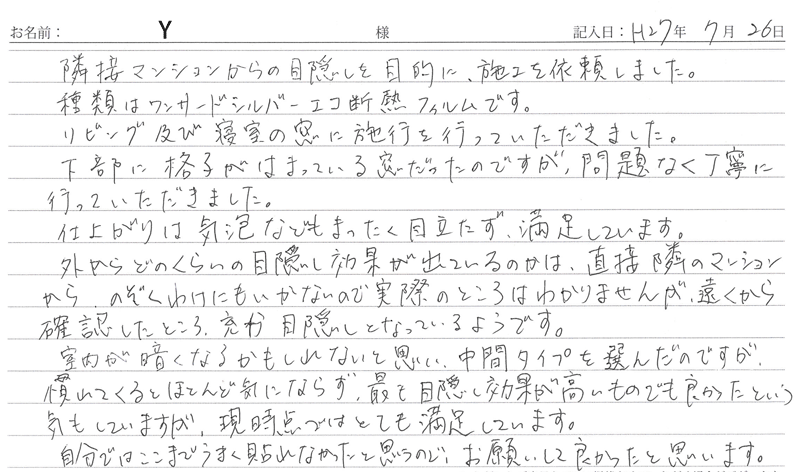 お名前： Y 様 記入日：H27年 7月 26日
隣接マンションからの目隠しを目的に、施工を依頼しました。
種類はワンサードシルバーエコ断熱フィルムです。
リビング及び寝室の窓に施行を行っていただきました。
下部に格子がはまっている窓だったのですが、問題なく丁寧に
行っていただきました。
仕上がりは気泡などもまったく目立たず、満足しています。
外からどのくらいの目隠し効果が出ているのかは、直接隣のマンション
から、のぞくわけにもいかないので実際のところはわかりませんが、遠くから
確認したところ、充分目隠しとなっているようです。
室内が暗くなるかもしれないと思い、中間タイプを選んだのですが、
慣れてくるとほとんど気にならず、最も目隠し効果が高いものでも良かったという
気もしていますが、現時点ではとても満足しています。
自分ではここまでうまく貼れなかったと思うので、お願いして良かったと思います。